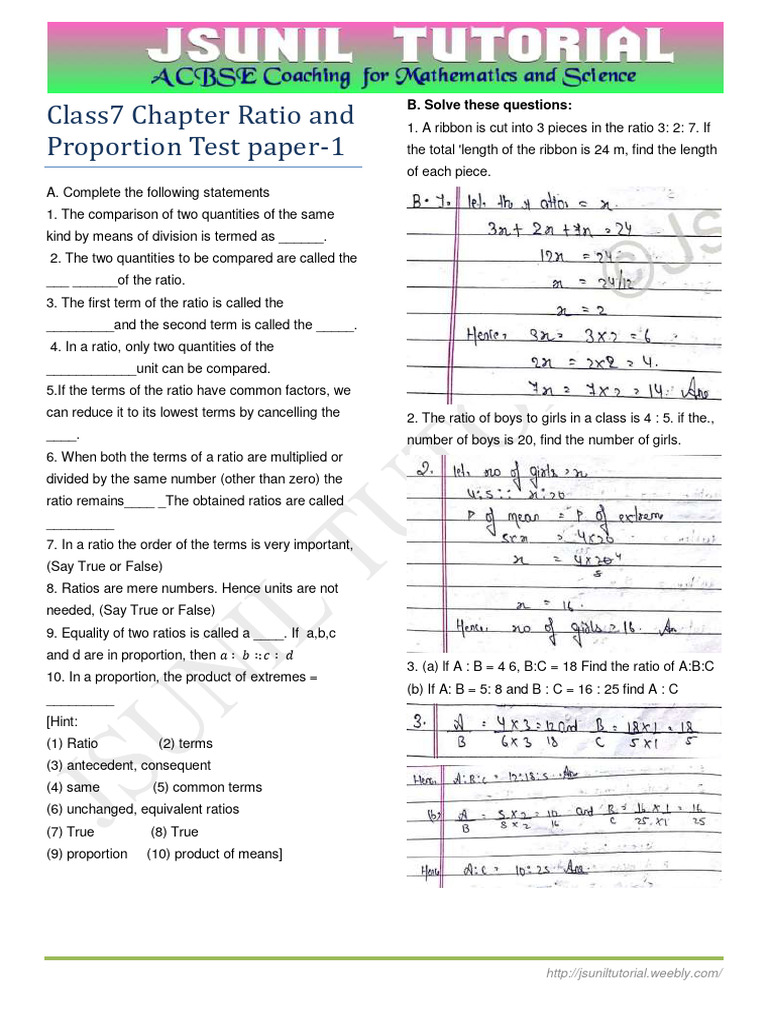 JSUNIL TUTORIAL
ACBSE Coaching for Mathematics and Science
Class7 Chapter Ratio and
Proportion Test paper-1
A. Complete the following statements
1. The comparison of two quantities of the same
kind by means of division is termed as ______.
2. The two quantities to be compared are called the
___ ______of the ratio.
3. The first term of the ratio is called the
_________and the second term is called the _____.
4. In a ratio, only two quantities of the
____________unit can be compared.
5.If the terms of the ratio have common factors, we
can reduce it to its lowest terms by cancelling the
____.
6. When both the terms of a ratio are multiplied or
divided by the same number (other than zero) the
ratio remains____ _The obtained ratios are called
_________
7. In a ratio the order of the terms is very important,
(Say True or False)
8. Ratios are mere numbers. Hence units are not
needed, (Say True or False)
9. Equality of two ratios is called a ____. If  a,b,c
and d are in proportion, then a : b :: c : d
10. In a proportion, the product of extremes =
_________
[Hint:
(1) Ratio (2) terms
(3) antecedent, consequent
(4) same (5) common terms
(6) unchanged, equivalent ratios
(7) True (8) True
(9) proportion (10) product of means]
B. Solve these questions:
1. A ribbon is cut into 3 pieces in the ratio 3: 2: 7. If
the total 'length of the ribbon is 24 m, find the length
of each piece.
let the ratio = x.
3x + 2x + 7x = 24
12x = 24
x = 24/12
x = 2
Hence, 3x = 3 x 2 = 6
2x = 2x2 = 4.
7x = 7 x 2 = 14. Ans
2. The ratio of boys to girls in a class is 4 : 5. if the.,
number of boys is 20, find the number of girls.
2. let, no of girls = x
4:5 :: x:20
P of mean = P of extrem
5xx = 4x20
x = 4x20 4
5
x = 16.
Hence, no of girls = 16. An
3. (a) If A : B = 4 6, B:C = 18 Find the ratio of A:B:C
(b) If A: B = 5: 8 and B : C = 16 : 25 find A : C
3. A = 4 x 3 = 12 and B = 18x1 = 18
B 6 x 3 18 C 5 x1 5
Hence, A:B:C = 12:18:5 Ans
(b) A = 5 x 2 = 10 and B = 16 x 1 = 16
B 8 x 2 16 C 25 x1 25
Hence A:C = 10:25 Ans
JSUNIL TUTO
© JS
http://jsuniltutorial.weebly.com/